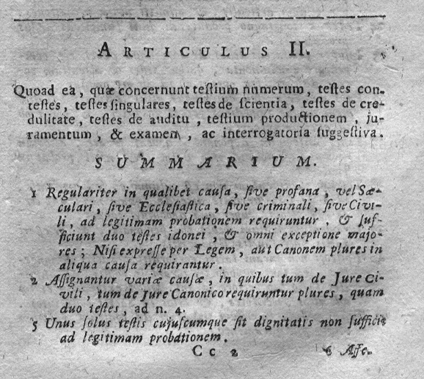 ARTICULUS II.
Quoad ea, quæ concernunt teſtium numerum, teſtes con-
teſtes, teſtes ſingulares, teſtes de ſcientia, teſtes de cre-
dulitate, teſtes de auditu, teſtium productionem, ju-
ramentum, & examen, ac interrogatoria ſuggeſtiva.
SUMMARIUM.
1 Regulariter in qualibet cauſa, ſive profana, vel Sæ-
culari, ſive Eccleſiaſtica, ſive criminali, ſive Civi-
li, ad legitimam probationem requiruntur, & ſuf-
ficiunt duo teſtes idonei, & omni exceptione majo-
res; Niſi expreſſe per Legem, aut Canonem plures in
aliqua cauſa requirantur.
2 Aſſignantur variæ cauſæ, in quibus tum de Jure Ci-
vili, tum de Jure Canonico requiruntur plures, quam
duo teſtes, ad n. 4.
5 Unus ſolus teſtis cujuſcumque ſit dignitatis non ſufficit
ad legitimam probationem.
Cc 2
6 Aſſe-